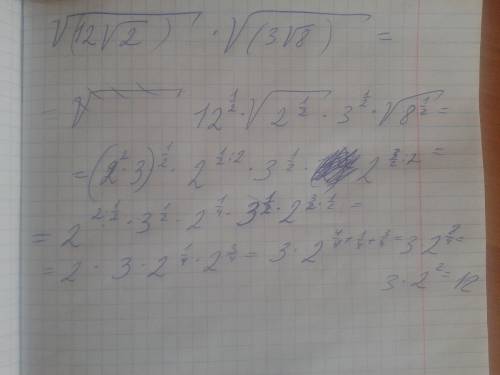 √(12√2) · √(3√8) =
= 12^{1/2} · √2^{1/2} · 3^{1/2} · √8^{1/2} =
= (2² · 3)^{1/2} · 2^{1/2 · 2} · 3^{1/2} · 2^{3/2 · 2} =
= 2^{2 · 1/2} · 3^{1/2} · 2^{1/4} · 3^{1/2} · 2^{3/2 · 1/2} =
= 2 · 3 · 2^{1/4} · 2^{3/4} = 3 · 2^{4/4 + 1/4 + 3/4} = 3 · 2^{8/4} =
3 · 2² = 12